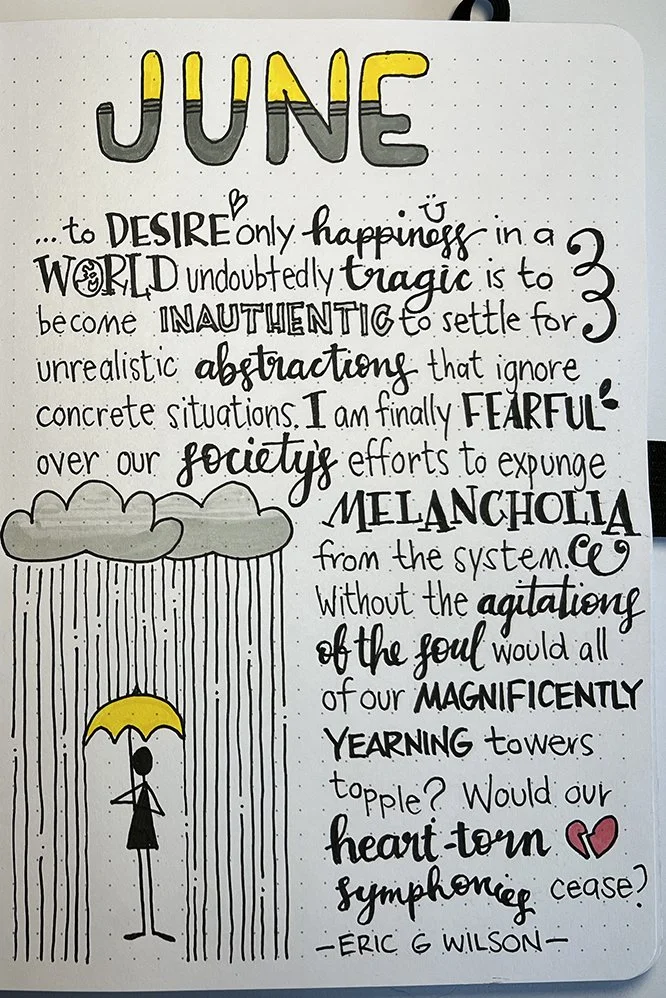 JUNE
...to DESIRE only happiness in a
WORLD undoubtedly tragic is to
become INAUTHENTIC to settle for
unrealistic abstractions that ignore
concrete situations. I am finally FEARFUL
over our society's efforts to expunge
MELANCHOLIA
from the system.
Without the agitations
of the soul would all
of our MAGNIFICENTLY
YEARNING towers
topple? Would our
heart-torn
symphonies cease?
-ERIC G WILSON-